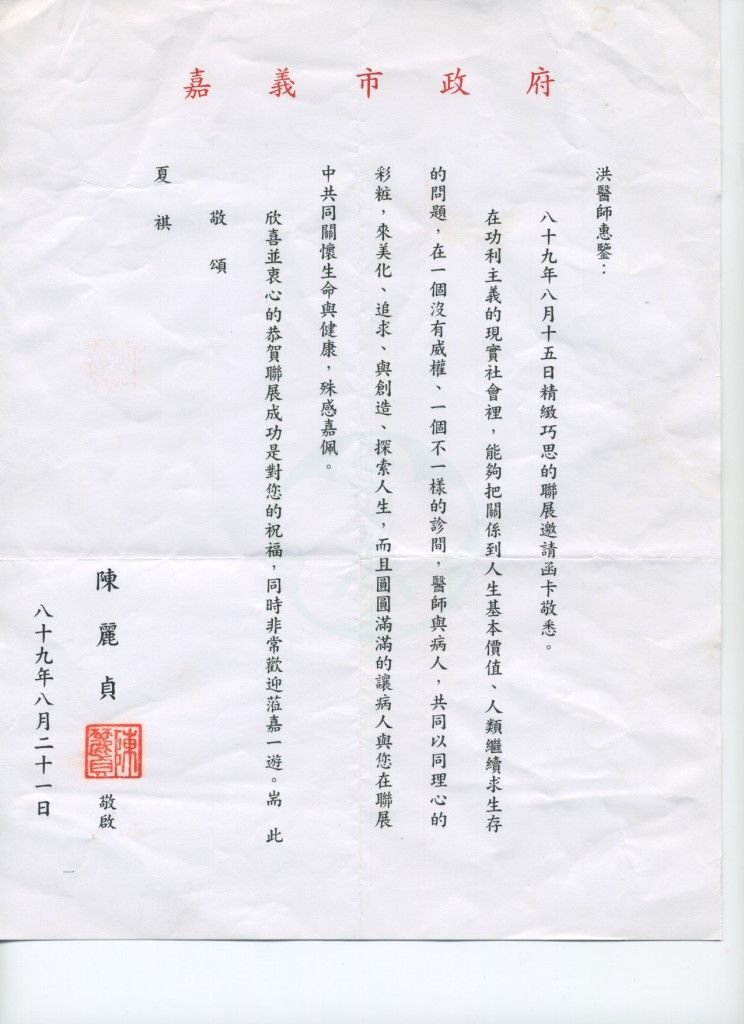 嘉義市政府
洪醫師惠鑒：
八十九年八月十五日精緻巧思的聯展邀請函卡敬悉。
在功利主義的現實社會裡，能夠把關係到人生基本價值、人類繼續求生存
的問題，在一個沒有威權、一個不一樣的診間，醫師與病人，共同以同理心的
彩粧，來美化、追求、與創造、探索人生，而且圓圓滿滿的讓病人與您在聯展
中共同關懷生命與健康，殊感嘉佩。
欣喜並衷心的恭賀聯展成功是對您的祝福，同時非常歡迎蒞嘉一遊。耑 此
敬 頌
夏 祺
陳 麗 貞 陳麗貞 敬啟
八十九年八月二十一日
一